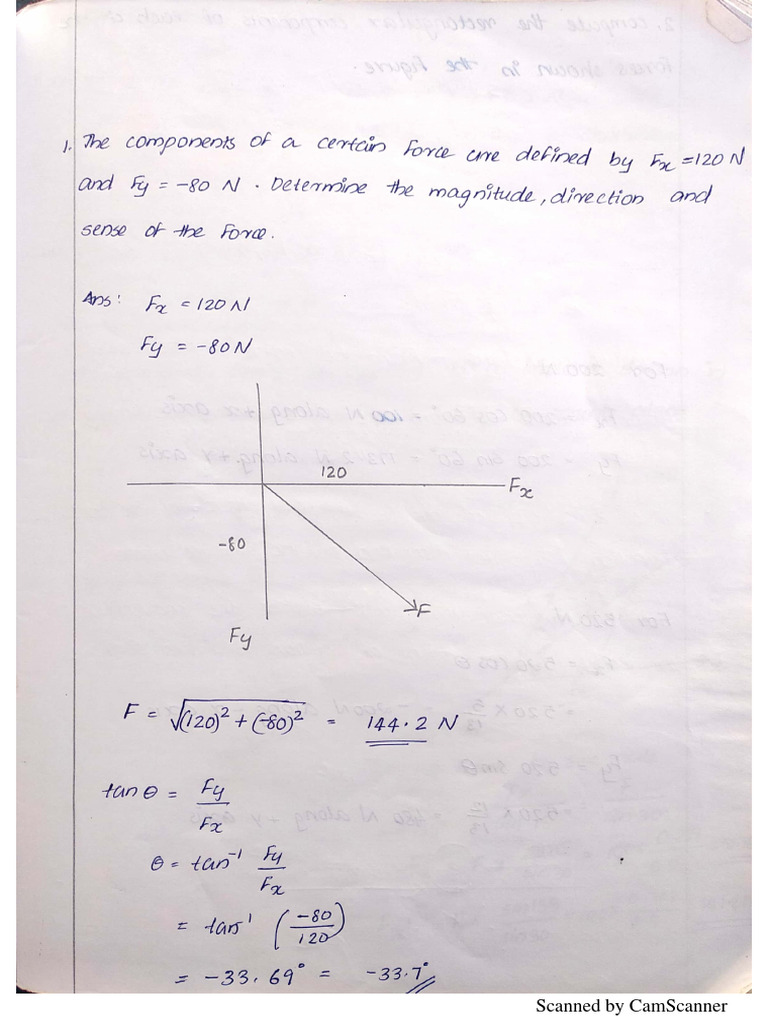 1. The components of a certain Force are defined by Fx = 120 N
and Fy = -80 N . Determine the magnitude, direction and
sense of the Force.
Ans: Fx = 120 N
Fy = -80 N
120
Fx
-80
F
Fy
F = √(120)² + (-80)² = 144.2 N
tan θ = Fy/Fx
θ = tan⁻¹ Fy/Fx
= tan⁻¹ (-80/120)
= -33.69° = -33.7°
Scanned by CamScanner